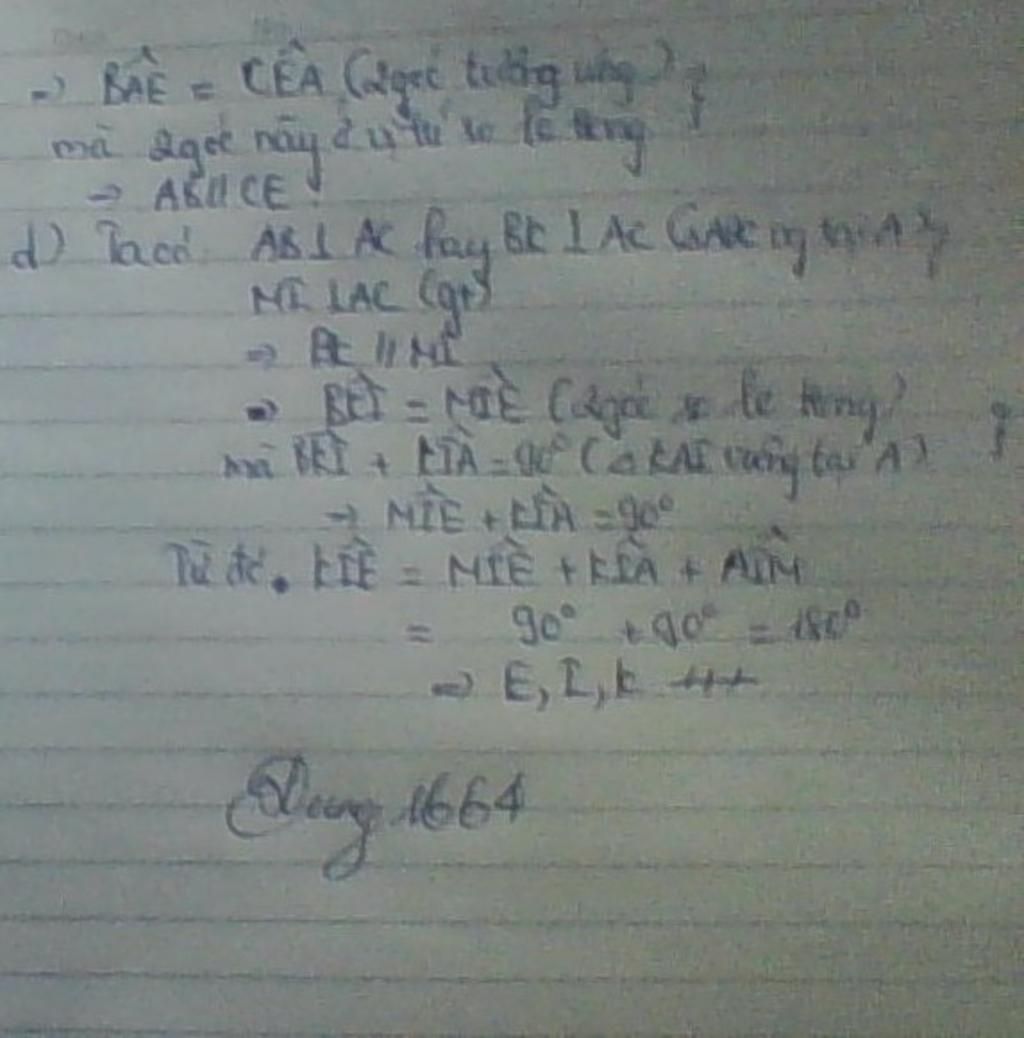 => BÂE = CÊA (2 góc tương ứng) }
mà 2 góc này ở vị trí so le trong
=> AB // CE
d) Ta có AB ⊥ AC hay BK ⊥ AC (ΔABC vg tại A) }
MI ⊥ AC (gt)
=> BK // MI
=> BKI = MIE (2 góc so le trong) }
mà BKI + KIA = 90° (Δ KAI vuông tại A)
=> MIE + KIA = 90°
Từ đó. KIE = MIE + KIA + AIM
= 90° + 90° = 180°
=> E, I, K
Dung 1664